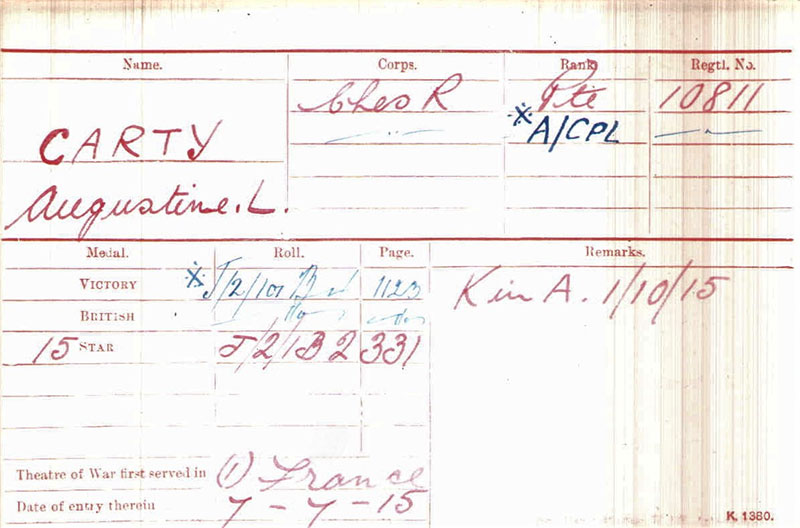 Name. Corps. Rank Regtl. No.
Ches R Pte 10811
CARTY
※ A/CPL
Augustine. L.
Medal. Roll. Page. Remarks.
VICTORY ※ J/2/101 1123
Kin A. 1/10/15
BRITISH
15 STAR J/2/1B2 331
Theatre of War first served in (1) France
Date of entry therein 7-7-15
K. 1380.